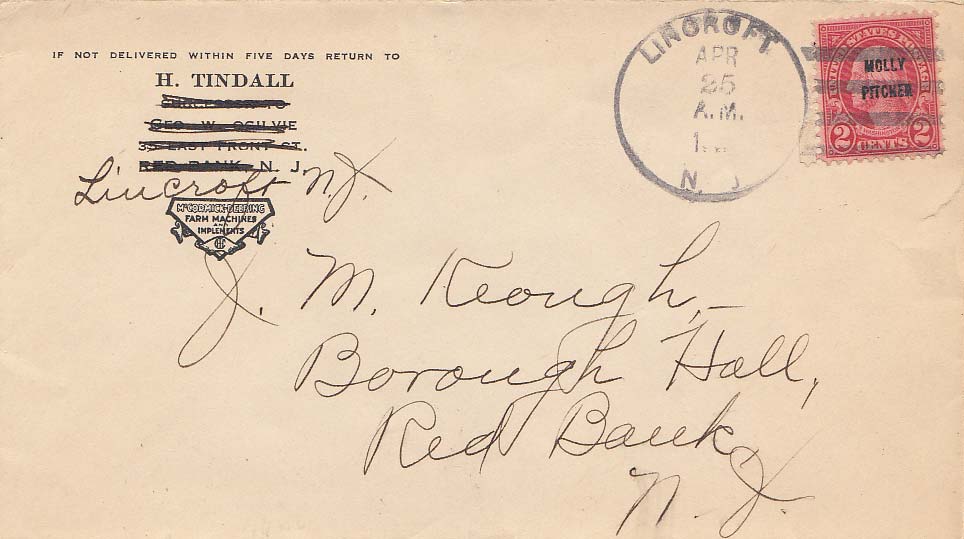 IF NOT DELIVERED WITHIN FIVE DAYS RETURN TO
H. TINDALL
SUCCESSOR TO
GEO. W. OGILVIE
35 EAST FRONT ST.
RED BANK, N. J.
Lincroft N.J.
McCORMICK-DEERING
FARM MACHINES
AND
IMPLEMENTS
IHC
LINCROFT
APR
25
A.M.
N. J.
UNITED STATES POSTAGE
MOLLY
PITCHER
WASHINGTON
2 CENTS 2
J. M. Keough,
Borough Hall,
Red Bank
N. J.